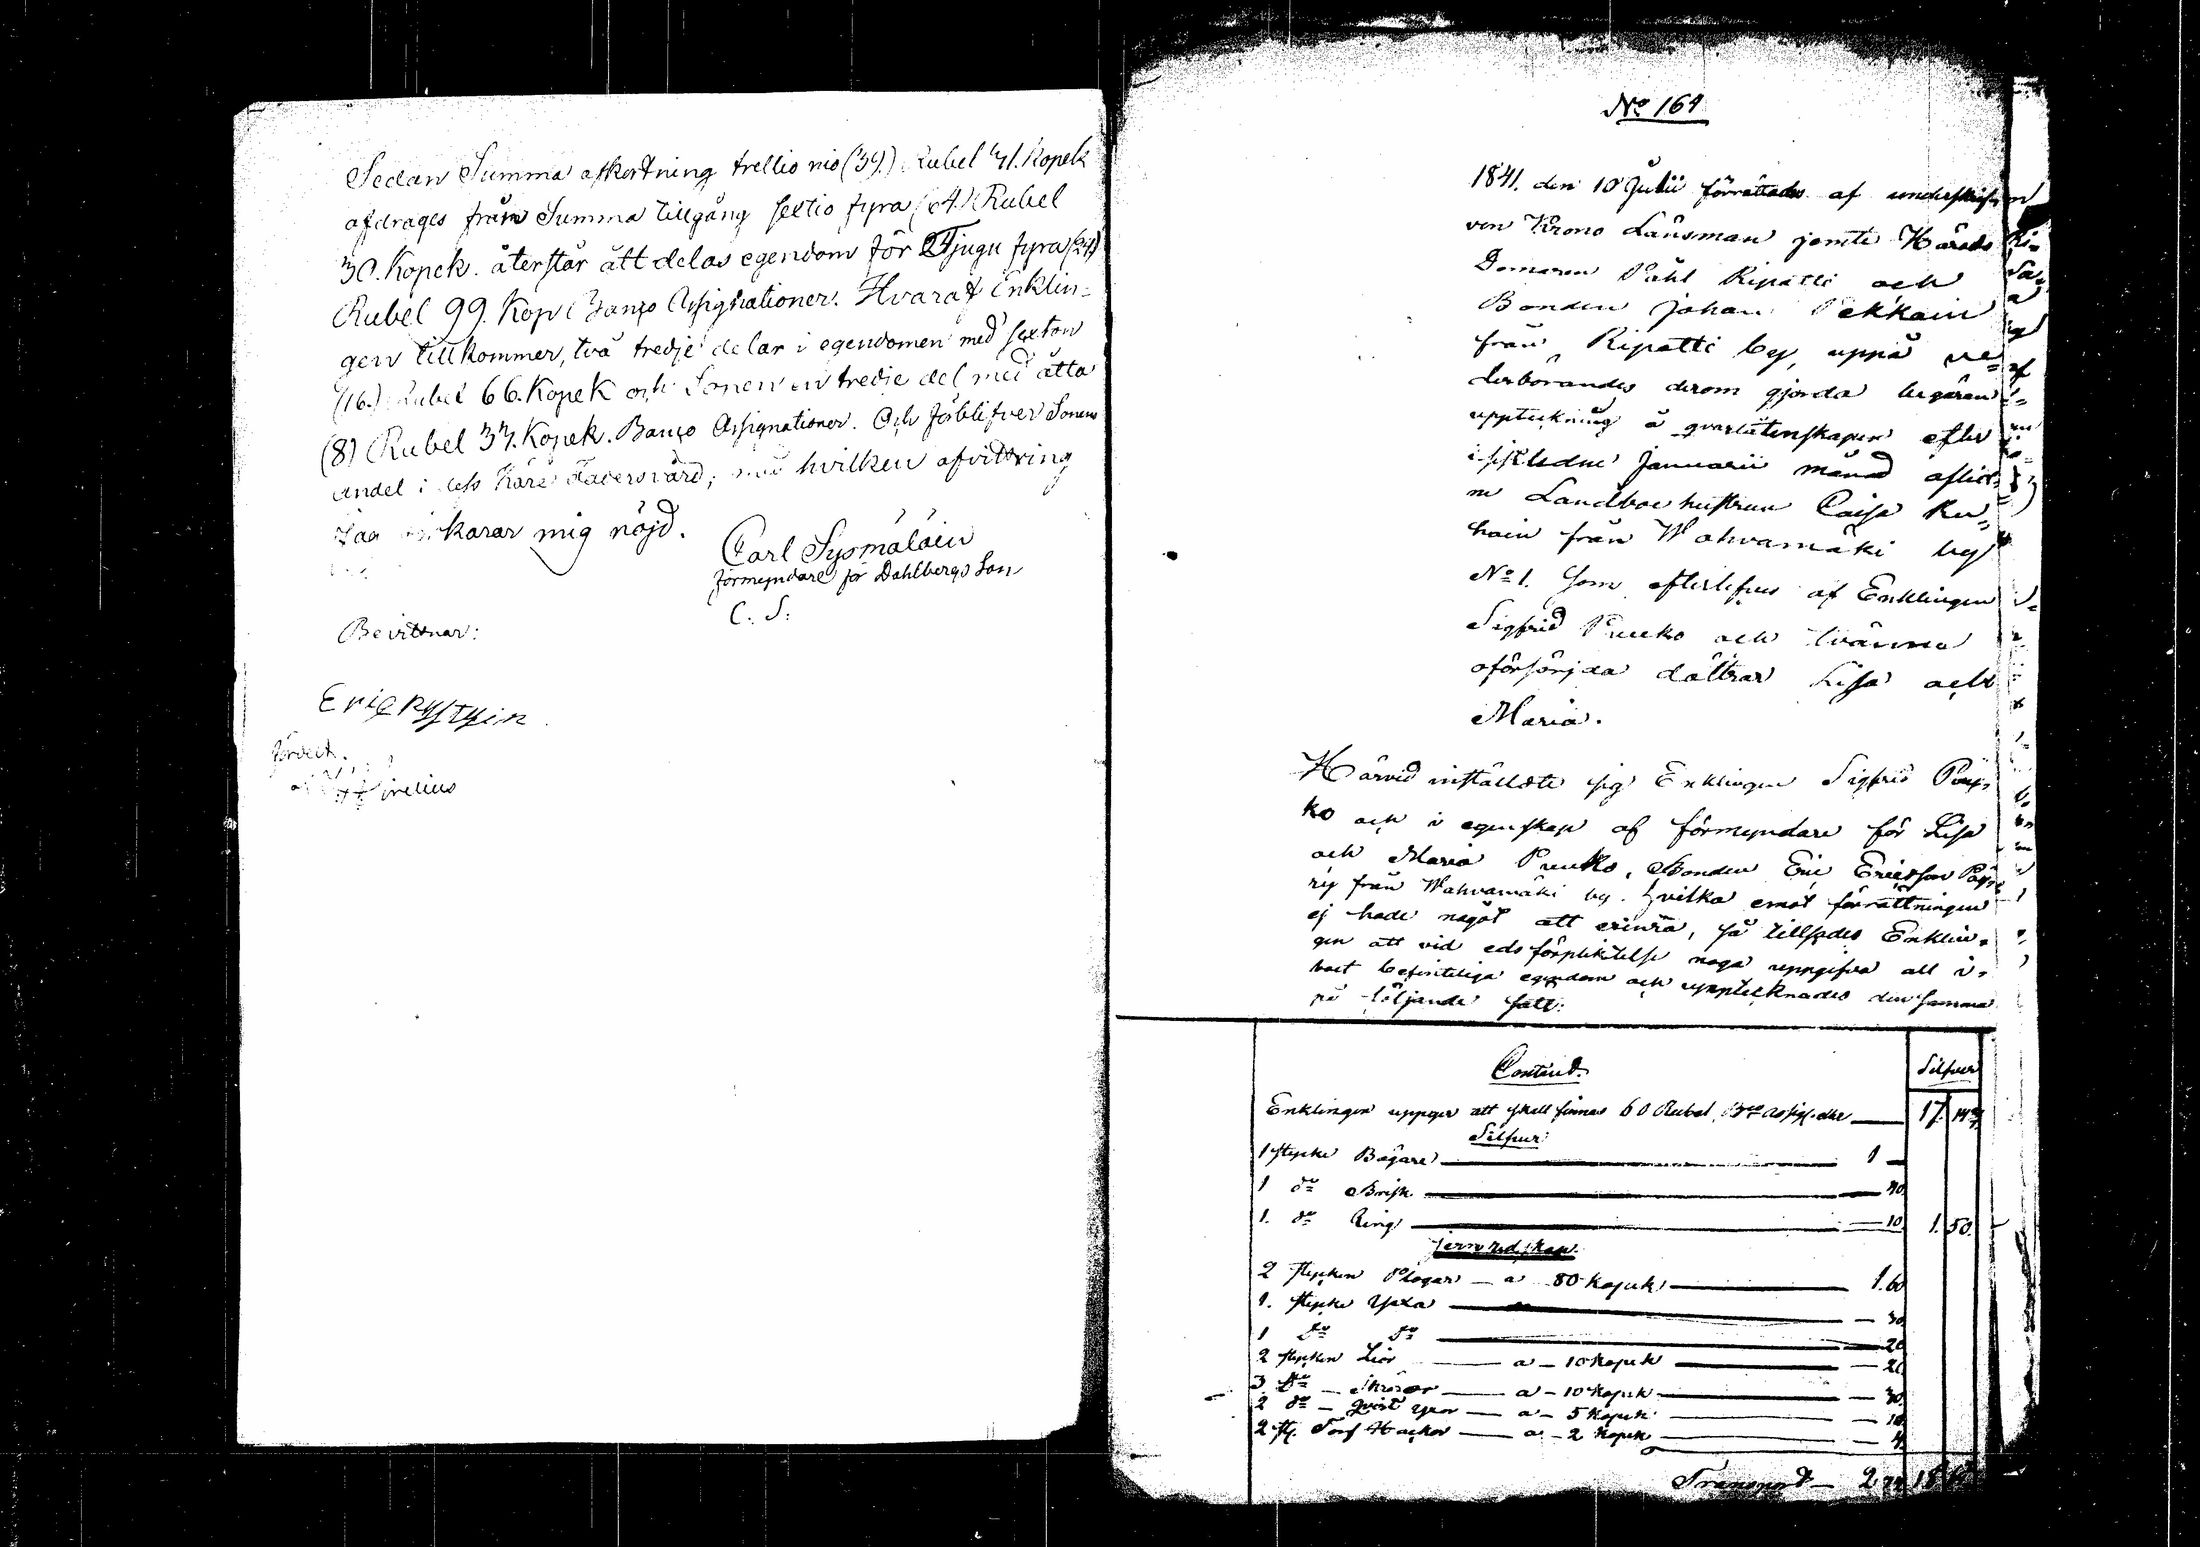 Sedan Summa afkortning trettio nio (39.) Rubel 31. Kopek
afdrages från Summa tillgång sextio fyra (64.) Rubel
30. Kopek. återstår att delas egendom för Tjugu fyra (24)
Rubel 99. Kop. Banco Assignationer. Hvaraf Enklin-
gen tillkommer, två tredje delar i egendomen med sexton
(16.) Rubel 66. Kopek och Sonen en tredje del med åtta
(8) Rubel 33. Kopek. Banco Assignationer. Och förblifver Sonens
andel i dess Kära Faders vård, med hvilken afvittring
jag förklarar mig nöjd.
Carl Sysmäläin
förmyndare för Dahlbergs Son
C. S:
Bevittnar:
Eric Rystyin
No 164
1841. den 10 Julii förrättades af underskrif-
ven Krono Länsman jemte Härads
Domaren Påhl Ripatti och
Bonden Johan Pekkain
från Ripatti by, uppå ve-
derbörandes derom gjorda begäran
uppteckning å qvarlåtenskapen efter
i sistledne Januarii månad aflid-
ne Landboe hustrun Caisa Ru-
hain från Wahvamäki by
No 1. Som efterlefves af Enklingen
Sigfrid Puuko och tvänne
oförsörjda döttrar Lisa och
Maria.
Härvid inställdte sig Enklingen Sigfrid Puu-
ko och i egenskap af förmyndare för Lisa
och Maria Puuko, Bonden Eric Ericsson
från Wahvamäki by. hvilka emot förrättningen
ej hade något att erinra, så tillsades Enklin-
gen att vid eds förpliktelse noga uppgifva all i
boet befinteliga egendom och upptecknades den samma
på följande sätt:
Contant.
Silfver
Enklingen uppger att skall finnas 60 Rubel Bco assig. eller 17. 14
Silfver
1 stycke Bägare 1 —
1 do Brisk 40.
1. do Ring 10. 1. 50.
Jern redskap.
2 stycken Plogar — a 80 kopek 1.60
1. stycke Yxa 30
1 Do Do 20
2 stycken Liar — a — 10 kopek 20
3 Do — Skäror — a — 10 kopek 30.
2 do — qvist yxor — a — 5 kopek 10
2 st. Torf Hackor — a — 2 kopek 4.
Transport — 2 74 18